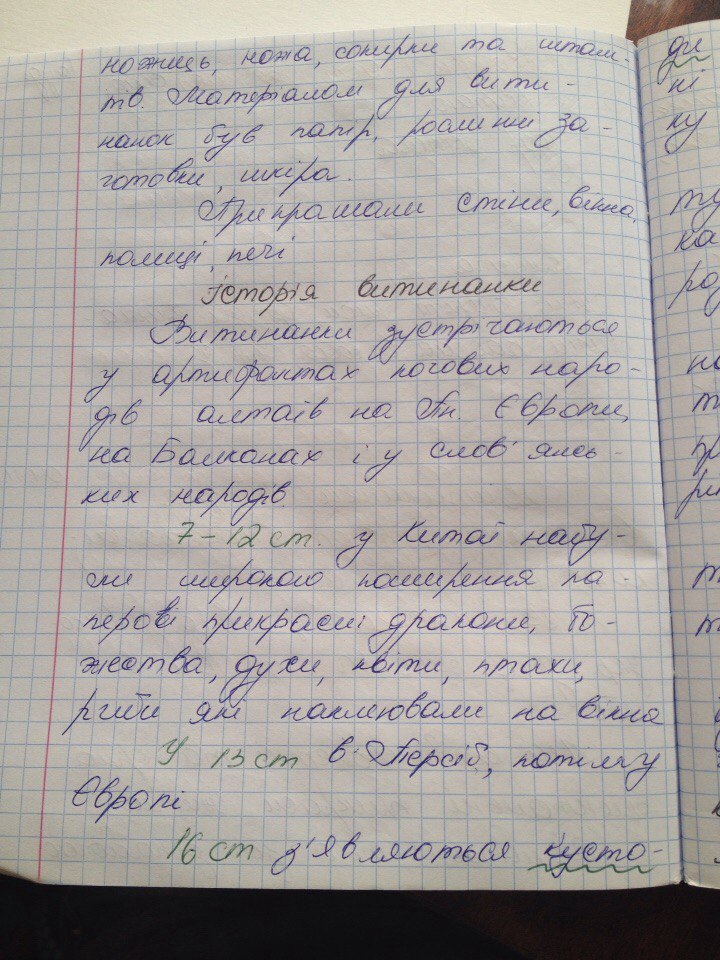 ножиць, ножа, сокирки та штам-
тв. Матеріалом для вити-
нанок був папір, рослинні за-
готовки, шкіра.
Прикрашали стіни, вікна,
полиці, печі
Історія витинанки
Витинанки зустрічаються
у артифактах кочових наро-
дів алтаїв на Пн. Європи,
на Балканах і у слов'янсь-
ких народів.
7-12 ст. у Китаї набу-
ли широкого поширення па-
перові прикраси: дракони, бо-
жества, духи, квіти, птахи,
риби які наклювали на вікна
У 13 ст в Персії, потім у
Європі
16 ст з'являються кусто-
ди
ні
ну
ту
ка
роз